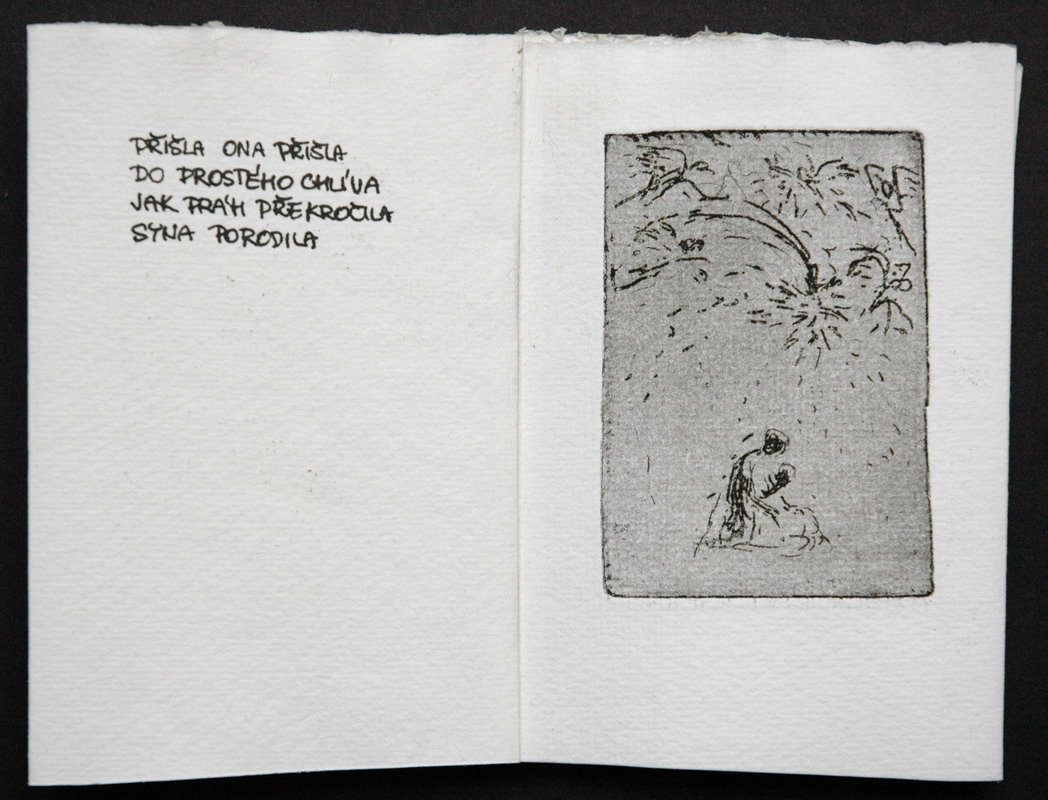 PŘIŠLA ONA PŘIŠLA
DO PROSTÉHO CHLÍVA
JAK PRÁH PŘEKROČILA
SYNA PORODILA